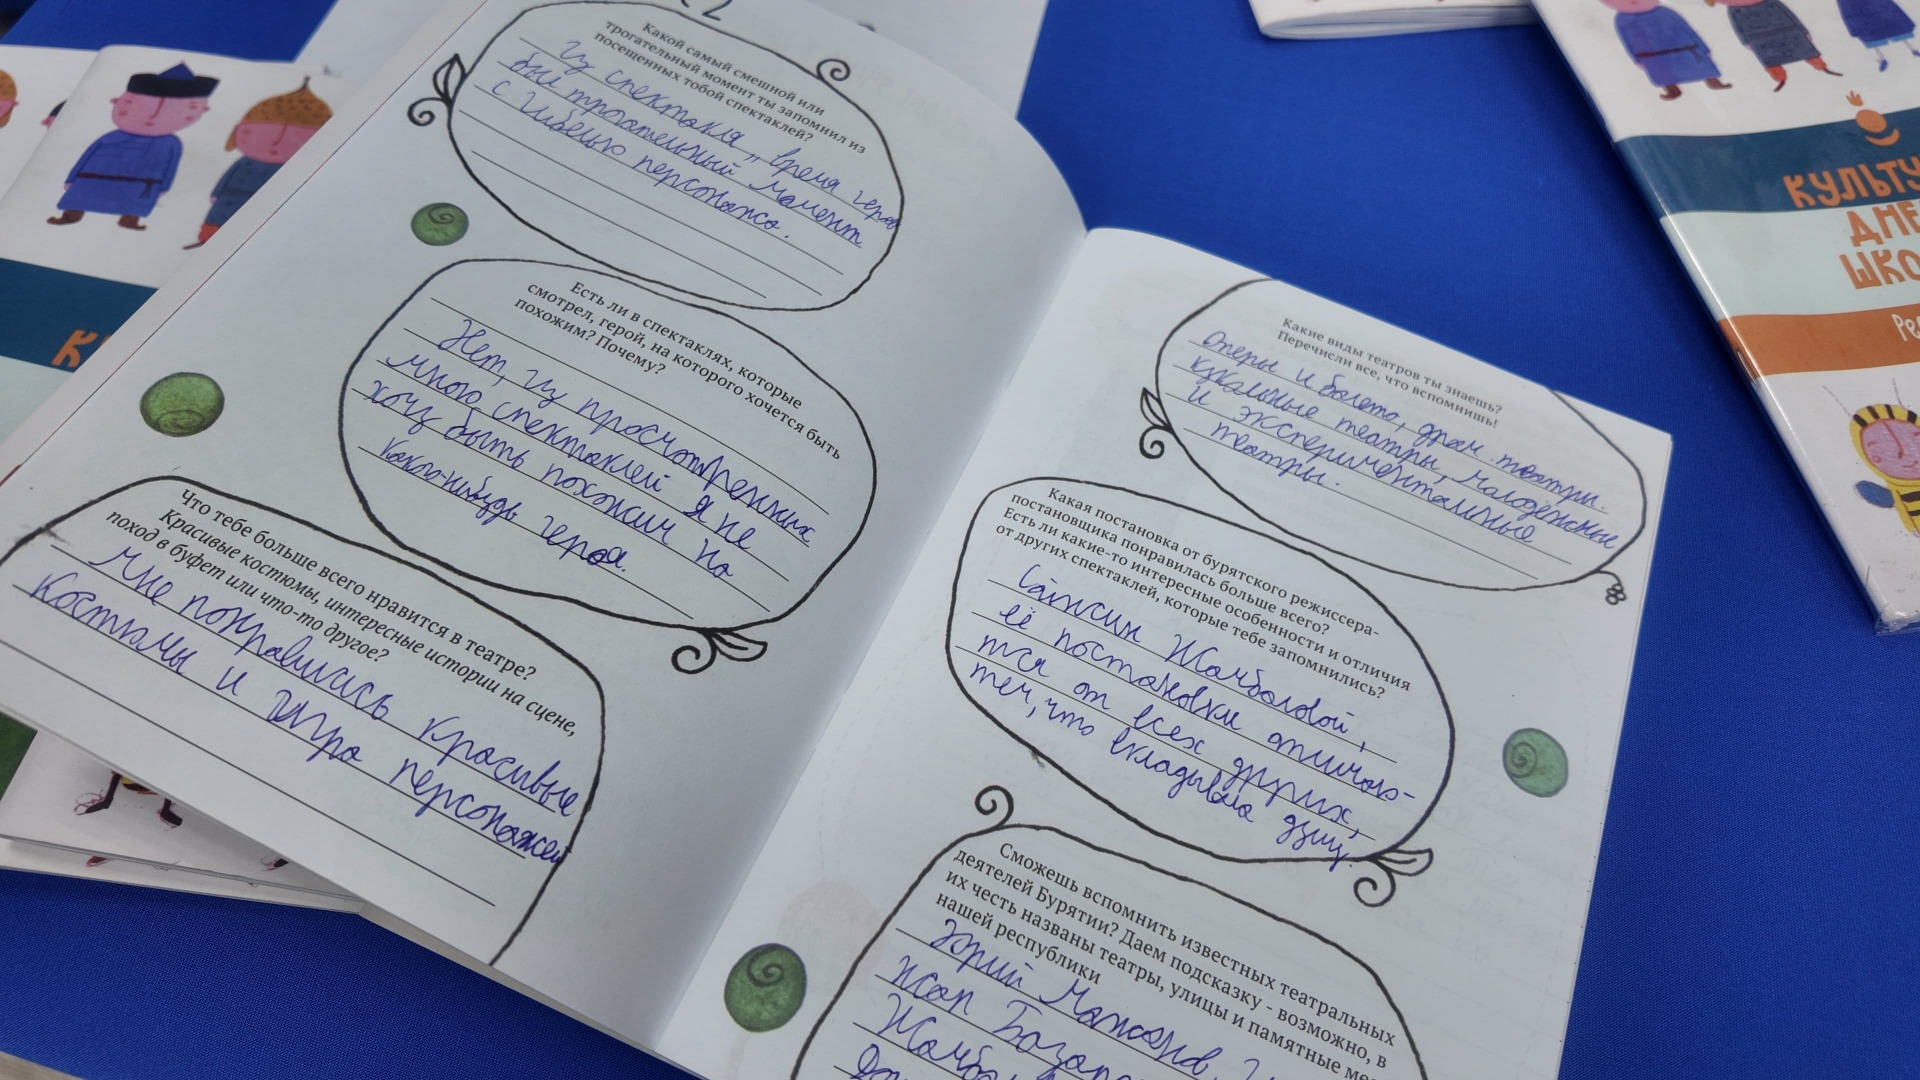 Какой самый смешной или
трогательный момент ты запомнил из
посещенных тобой спектаклей?
Из спектакля „ время героев
был трогательный момент
с гибелью персонажа.
Есть ли в спектаклях, которые
смотрел, герой, на которого хочется быть
похожим? Почему?
Нет, из просмотренных
мною спектаклей я не
хочу быть похожим на
какого-нибудь героя.
Что тебе больше всего нравится в театре?
Красивые костюмы, интересные истории на сцене,
поход в буфет или что-то другое?
Мне понравились красивые
костюмы и игра персонажей
Какие виды театров ты знаешь?
Перечисли все, что вспомнишь!
Оперы и балета, драм. театры.
кукольные театры, молодёжные
и экспериментальные
театры.
Какая постановка от бурятского режиссера-
постановщика понравилась больше всего?
Есть ли какие-то интересные особенности и отличия
от других спектаклей, которые тебе запомнились?
Сайжин Жамбаловой,
её постановки отличаю-
тся от всех других,
тем, что вкладывала душу.
Сможешь вспомнить известных театральных
деятелей Бурятии? Даем подсказку - возможно, в
их честь названы театры, улицы и памятные ме
нашей республики
Жап Базар
Жамба
КУЛЬТУ
ДНЕ
ШКО
Рес
К